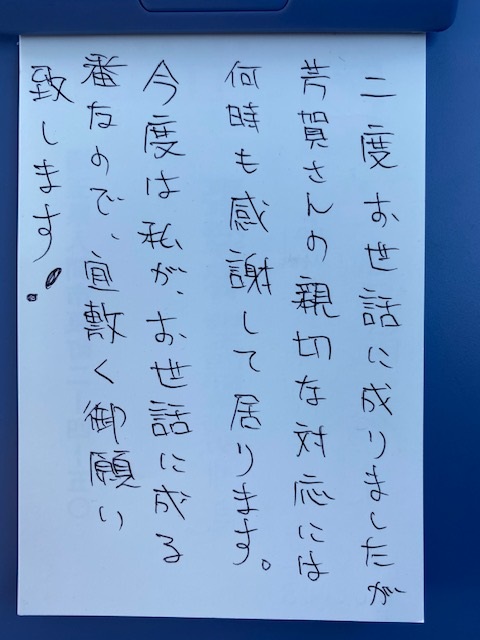 二度お世話に成りましたが
芳賀さんの親切な対応には
何時も感謝して居ります。
今度は私が、お世話に成る
番なので、宜敷く御願い
致します!